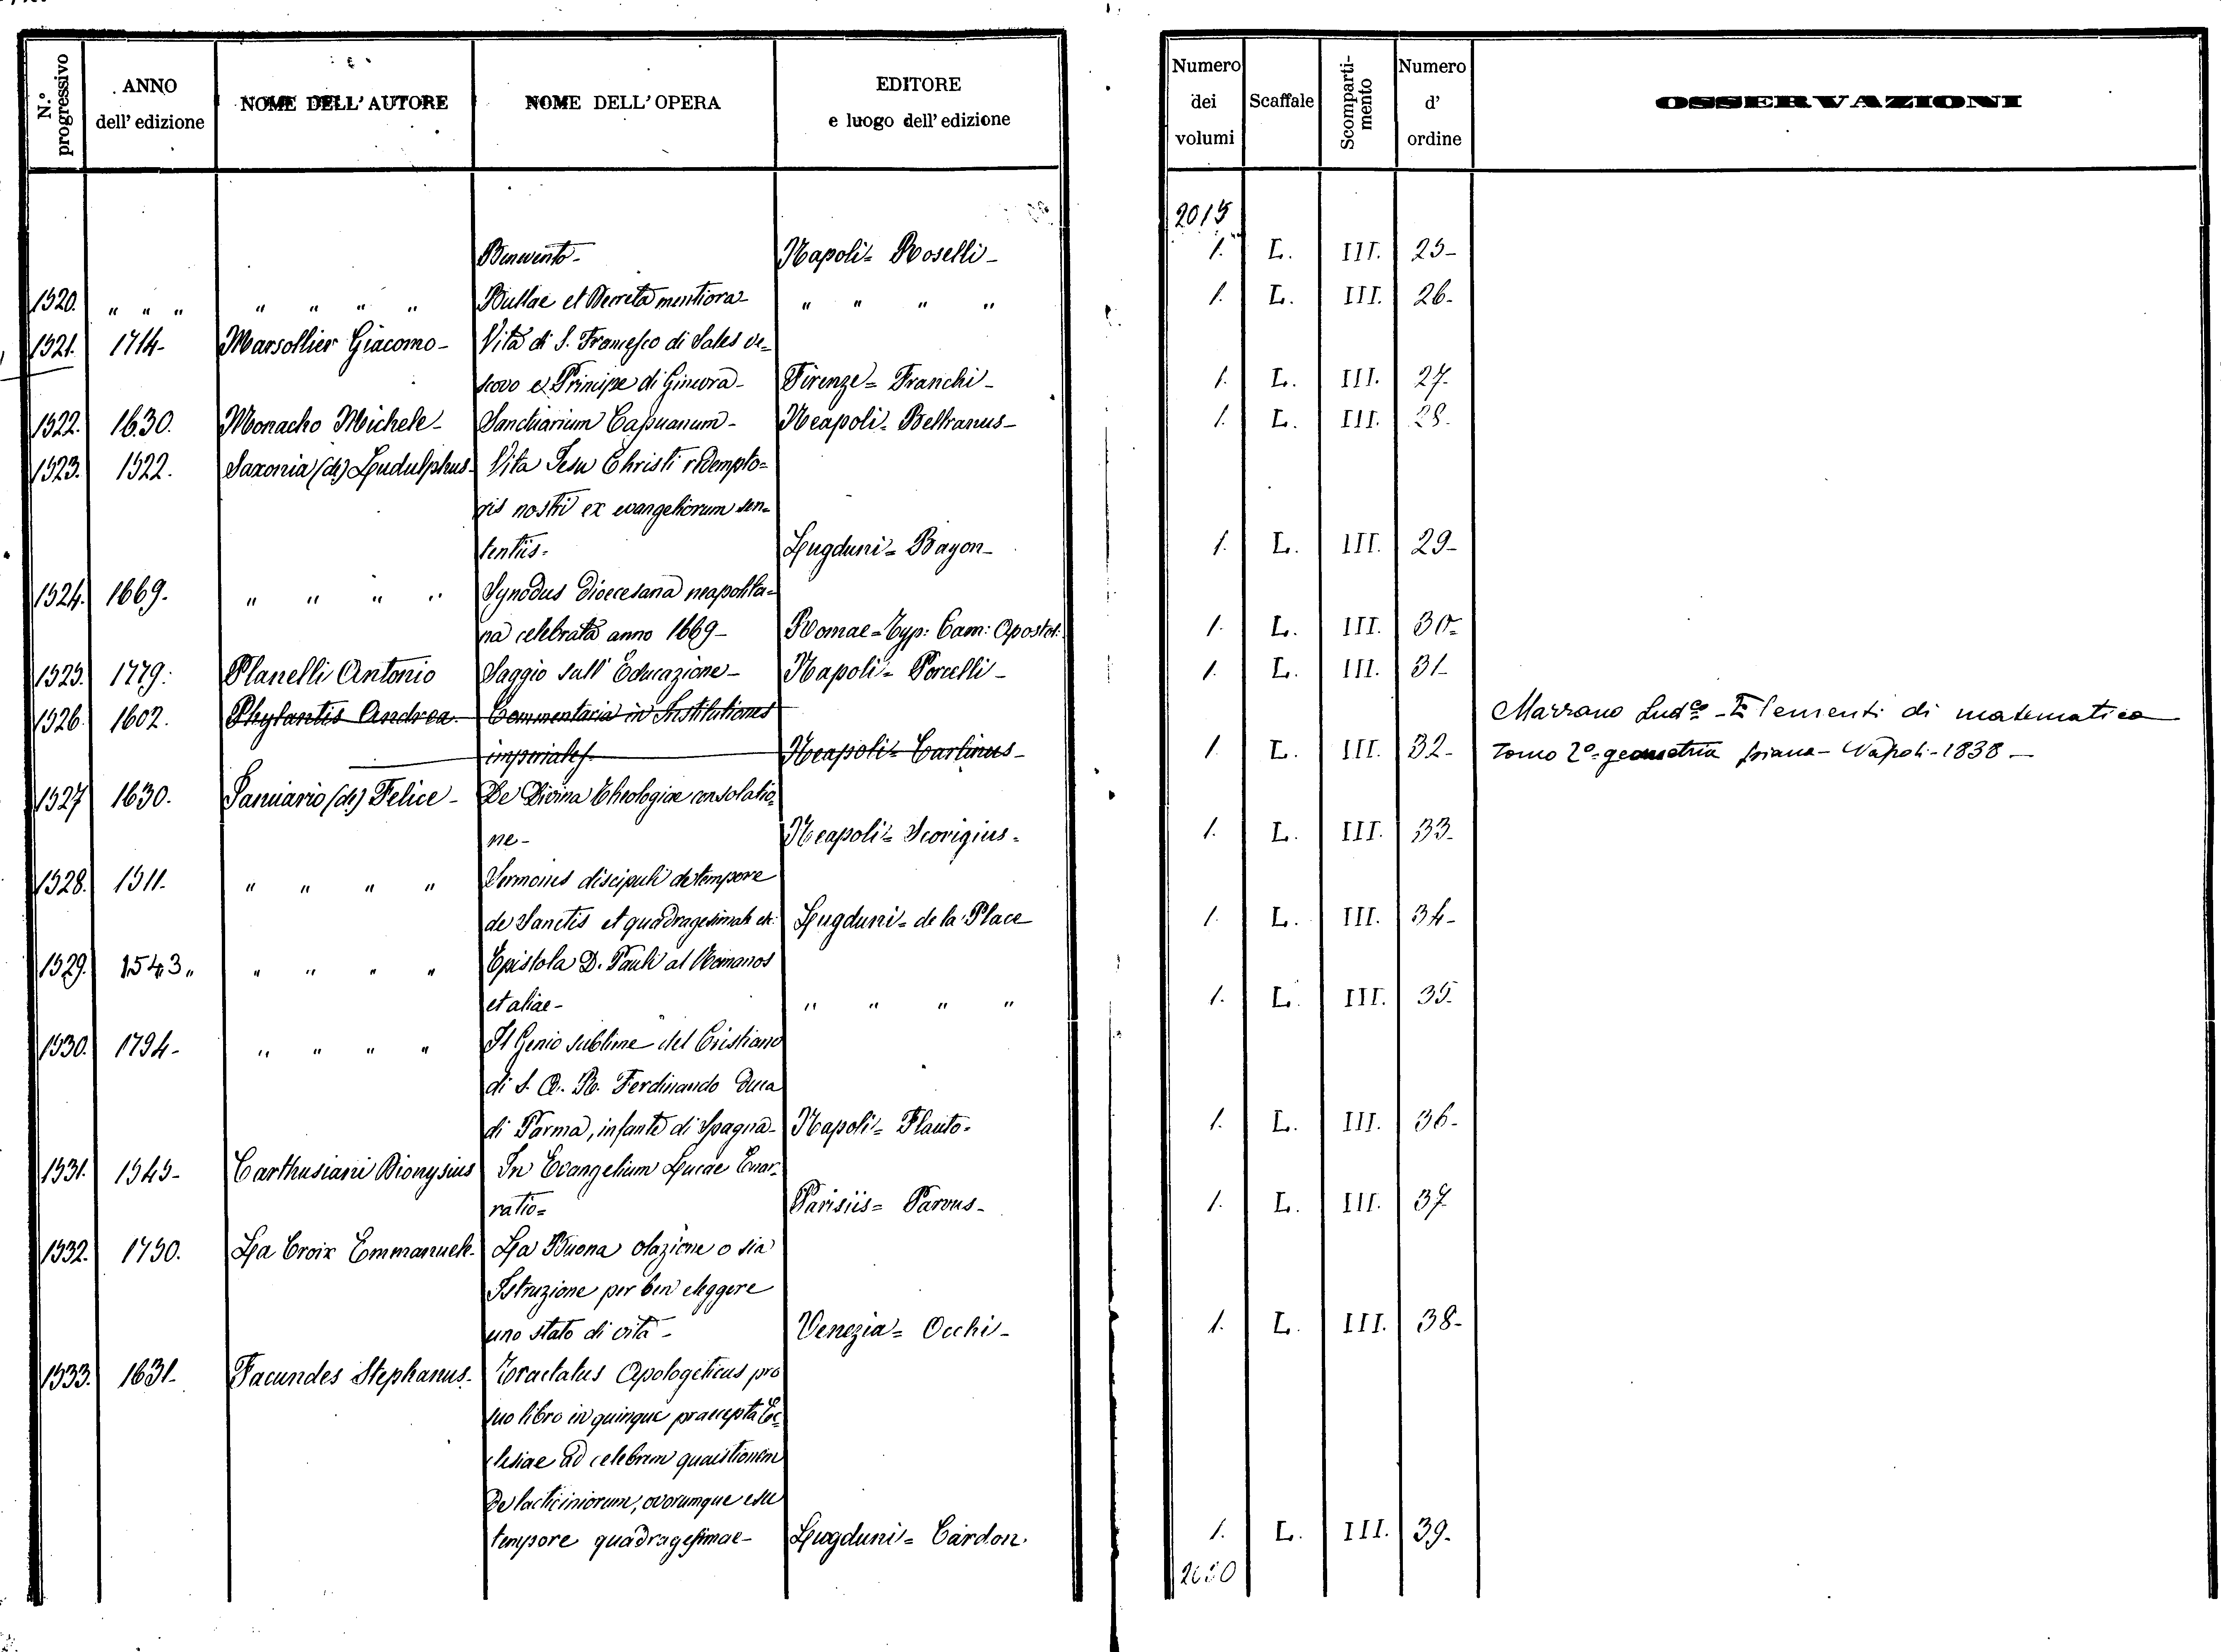 N.° progressivo ANNO dell' edizione NOME DELL' AUTORE NOME DELL' OPERA EDITORE e luogo dell' edizione Numero dei volumi Scaffale Scomparti-mento Numero d' ordine OSSERVAZIONI
2015
Benevento- Napoli= Roselli- 1. L. III. 25-
1520. " " " " " " " Bullae et Decreta mentiora- " " " " 1. L. III. 26.
1521. 1714- Marsollier Giacomo- Vita di S. Francesco di Sales ve=
scovo e Principe di Ginevra- Firenze= Franchi- 1. L. III. 27.
1522. 1630. Monacho Michele- Sanctuarium Capuanum- Neapoli= Beltranus- 1. L. III. 28.
1523. 1522. Saxonia (de) Ludulphus- Vita Jesu Christi redempto=
ris nostri ex evangeliorum sen=
tentiis- Lugduni= Bayon- 1. L. III. 29-
1524. 1669. " " " " Synodus Dioecesana neapolita=
na celebrata anno 1669- Romae= Typ: Cam: Apostol: 1. L. III. 30-
1525. 1779. Planelli Antonio Saggio sull' Educazione- Napoli= Porcelli- 1. L. III. 31-
1526. 1602. Phylantis Andrea. Commentaria in Institutiones Marrano Lud.co - Elementi di matematica
imperiales- Neapoli= Carlinus- 1. L. III. 32- tomo 2.° geometria piana- Napoli-1838-
1527 1630. Januario (de) Felice- De Divina Theologiae consolatio=
ne- Neapoli= Scorigius- 1. L. III. 33-
1528. 1511. " " " " Sermones discipuli de tempore
de Sanctis et quadragesimale etc. Lugduni= de la Place 1. L. III. 34-
1529. 1543.. " " " " Epistola D. Pauli at Romanos
et aliae- " " " " 1. L. III. 35.
1530. 1794- " " " " Il Genio sublime del Cristiano
di S. A. R. Ferdinando Duca
di Parma, infante di Spagna- Napoli= Flauto- 1. L. III. 36-
1531. 1545- Carthusiani Dionysius In Evangelium Lucae Enar=
ratio= Parisiis= Parvus- 1. L. III. 37-
1532. 1750. La Croix Emmanuele- La Buona olazione o sia
Istruzione per ben eleggere
uno stato di vita- Venezia= Occhi- 1. L. III. 38-
1533. 1631- Facundes Stephanus- Tractatus Apologeticus pro
suo libro in quinque praecepta Ec=
clesiae ad celebrem quaestionem
De lacticiniorum, ovorumque esu
tempore quadragesimae- Lugduni= Cardon. 1. L. III. 39-
2030